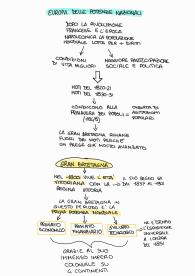 EUROPA DELLE POTENZE NAZIONALI
DOPO LA RIVOLUZIONE
FRANCESE E L'EPOCA
NAPOLEONICA LA POPOLAZIONE
EUROPEA LOTTA PER + DIRITTI
CONDIZIONI
DI VITA MIGLIORI
MAGGIORE PARTECIPAZIONE
SOCIALE E POLITICA
MOTI DEL 1820-21
MOTI DEL 1830-31
CONDUCONO ALLA
PRIMAVERA DEI POPOLI
(1848)
LA GRAN BRETAGNA RIMANE
FUORI DAI MOTI PERCHÈ
UN PAESE GIÀ MOLTO AVANZATO
GRAN BRETAGNA
NEL 1800 VIVE L'ETÀ
VITTORIANA CON LA
REGINA VITTORIA
IL SUO REGNO VA
DAL 1837 AL 1901
LA GRAN BRETAGNA IN
QUESTO PERIODO È LA
PRIMA POTENZA MONDIALE
PRIMATO
ECONOMICO
PRIMATO
FINANZIARIO
SVILUPPO
TECNOLOGICO
L'ESPOSIZIONE
UNIVERSALE
A LONDRA
DEL 1851
GRAZIE AL SUO
IMMENSO IMPERO
COLONIALE SU
4 CONTINENTI